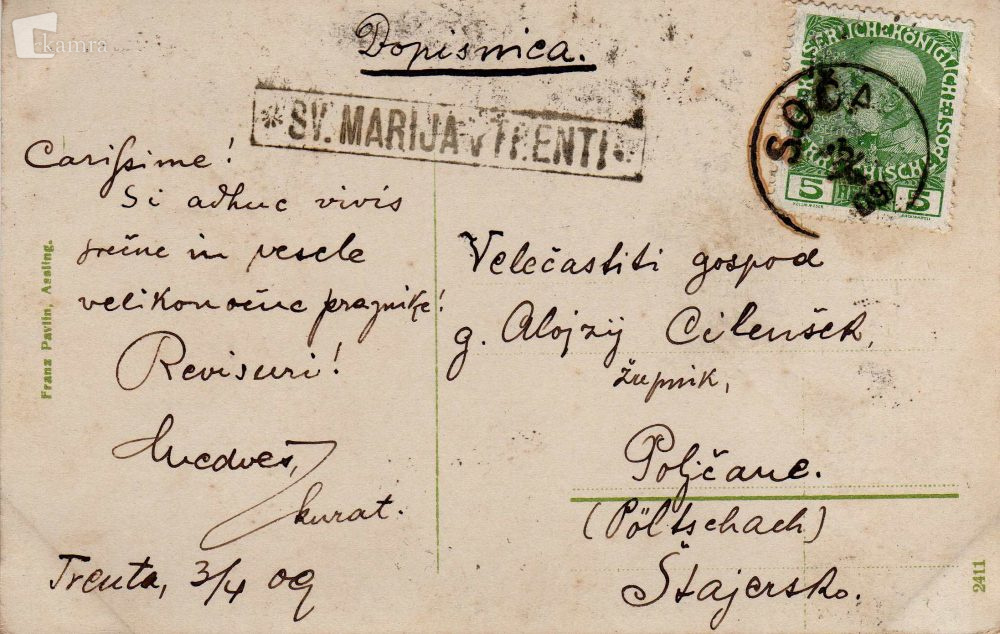 kamra
Dopisnica.
* SV. MARIJA V TRENTI *
SOČA
09
KAISERLICHE KÖNIGLICHE
5 5
Carissime!
Si adhuc vivis
srečne in vesele
velikonočne praznike!
Revisuri!
Medveš,
kurat.
Trenta, 3/4 09
Velečastiti gospod
g. Alojzij Cilenšek,
župnik,
Poljčane.
(Pöltschach)
Štajersko.
Franz Pavlin, Assling.
2411